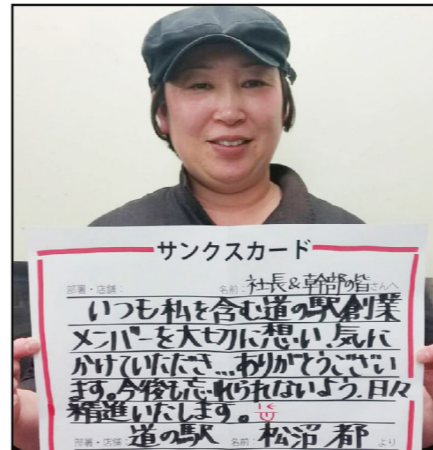 サンクスカード
部署・店舗： 名前：社長&幹部の皆さんへ
いつも私を含む道の駅創業
メンバーを大切に想い、気に
かけていただき…ありがとうござい
ます。今後も忘れられないよう、日々
精進いたします。
部署・店舗：道の駅 名前：松沼 都 より